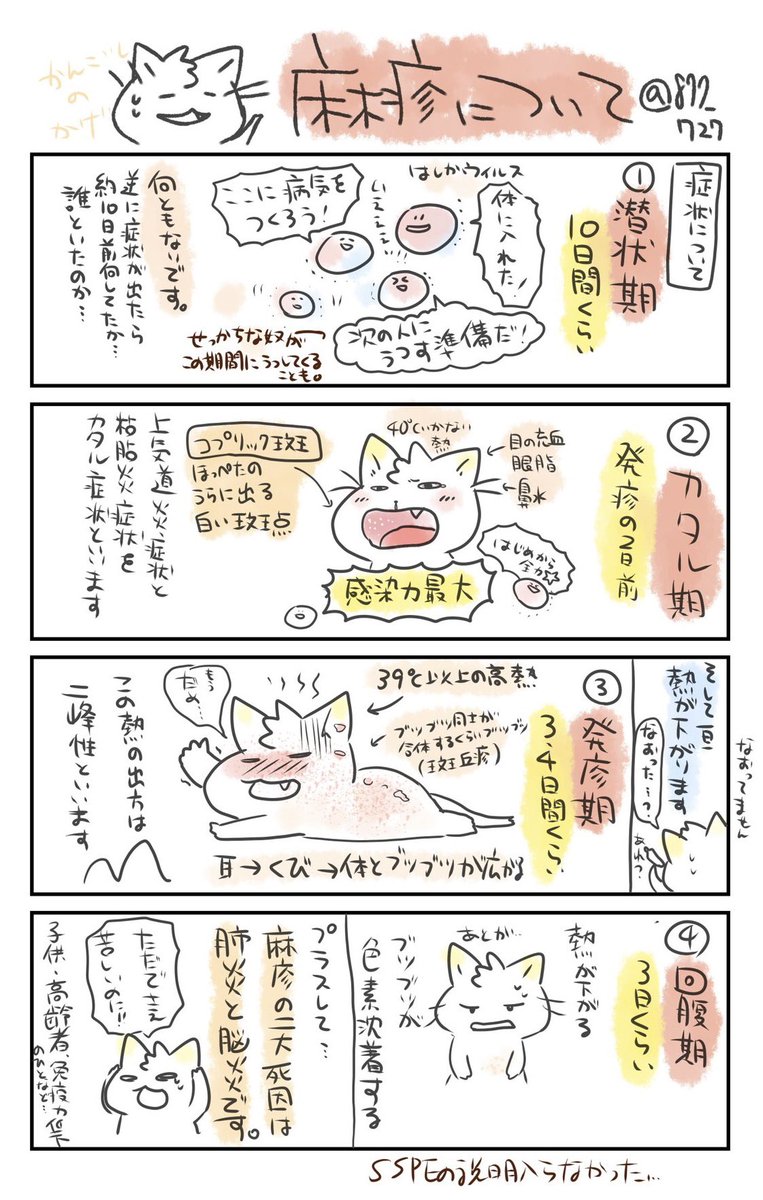 かんごし
の
かげ
麻疹について
@877_
727
症状について
①潜状期
10日間くらい
はしかウィルス
体に入れた!
いえええい
ここに病気を
つくろう!
次の人に
うつす準備だ!
せっかちな奴が
この期間にうつしてくる
ことも。
何ともないです。
逆に症状が出たら
約10日前何してたか…
誰といたのか…
②カタル期
発疹の2日前
40℃いかない
熱
目の充血
眼脂
鼻水
コプリック斑
ほっぺたの
うらに出る
白い斑点
はじめから
全力☆
感染力最大
上気道炎症状と
粘脂炎症状を
カタル症状といいます
そして一旦
熱が下がります
なおった…?
あれ?
なおってません
③発疹期
3、4日間くらい
39℃以上の高熱
ブツブツ同士が
合体するくらいブツブツ
(斑丘疹)
もう
だめ…
耳→くび→体とブツブツが広がる
この熱の出方は
二峰性といいます
④回腹期
3日くらい
熱が下がる
あとが…
ブツブツが
色素沈着する
プラスして…
麻疹の二大死因は
肺炎と脳炎です。
ただでさえ
苦しいのに!!
子供・高齢者、免疫力低下
のひとなど…
SSPEの説明入らなかった…